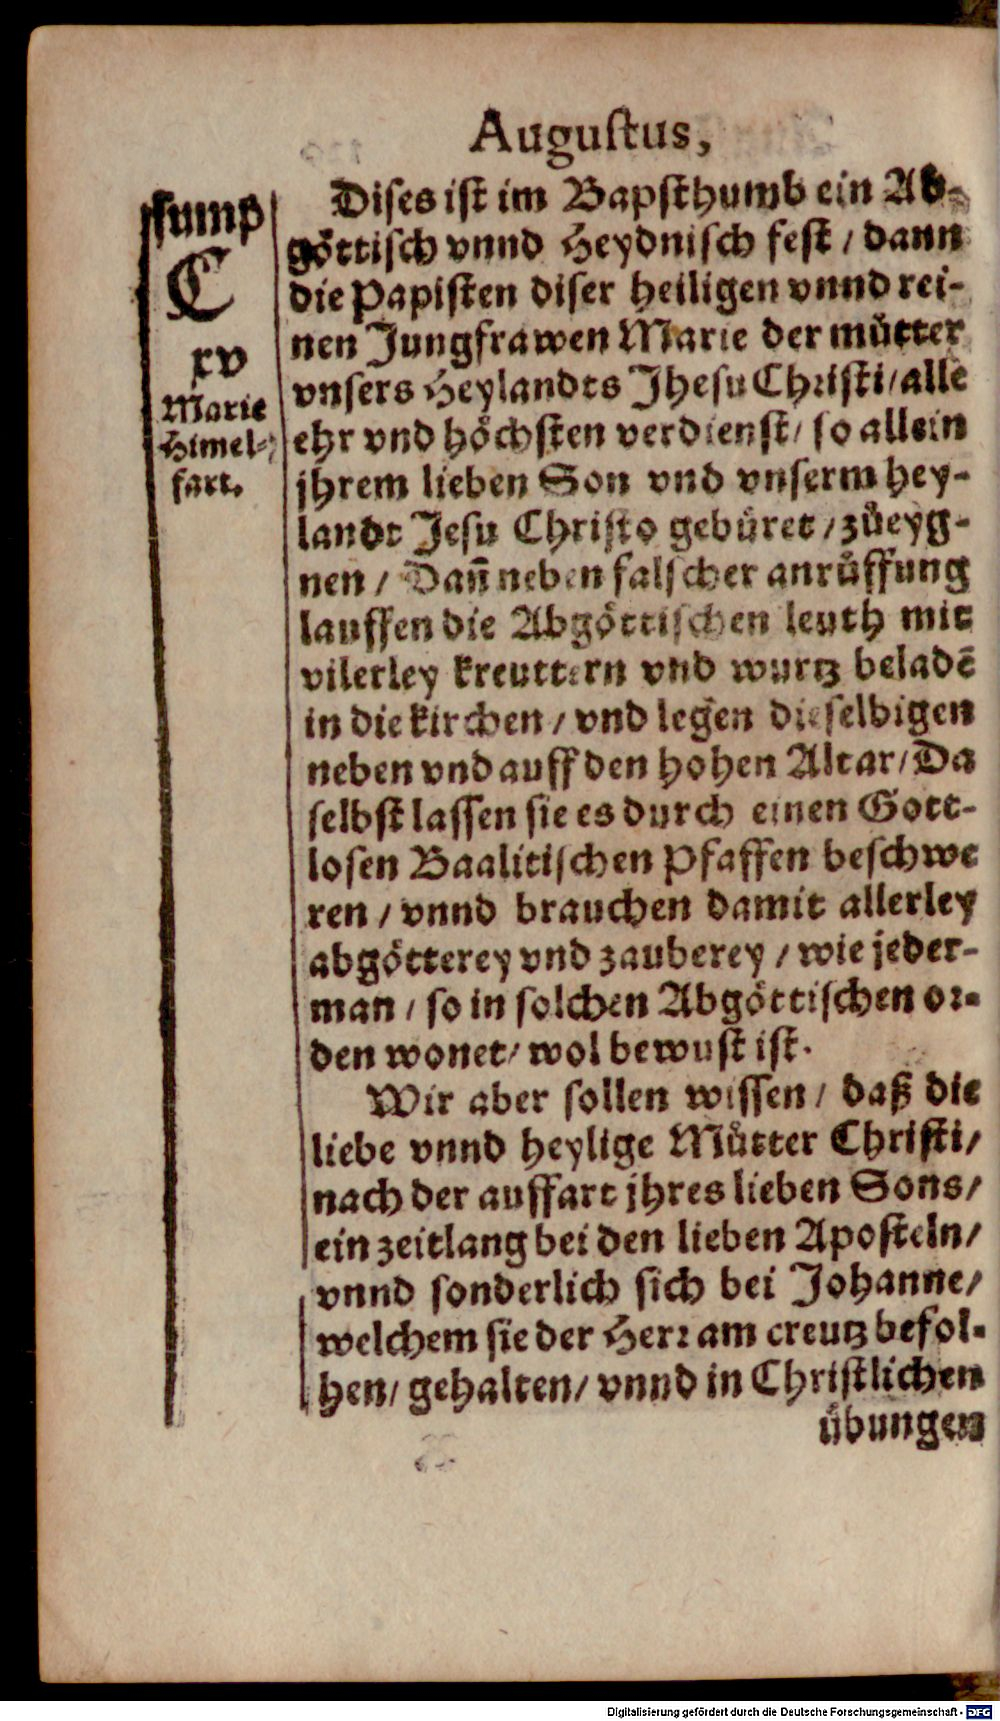 Augustus,
sump
C
xv
Marie
Himel-
fart.
Dises ist im Bapsthumb ein Ab-
göttisch vnnd Heydnisch fest / dann
die Papisten diser heiligen vnnd rei-
nen Jungfrawen Marie der můtter
vnsers Heylandts Jhesu Christi / alle
ehr vnd höchsten verdienst / so allein
jhrem lieben Son vnd vnserm hey-
landt Jesu Christo gebüret / zůeyg-
nen / Dañ neben falscher anrůffung
lauffen die Abgöttischen leuth mit
vilerley kreuttern vnd wurtz beladē
in die kirchen / vnd legen dieselbigen
neben vnd auff den hohen Altar / Da
selbst lassen sie es durch einen Gott-
losen Baalitischen Pfaffen beschwe
ren / vnnd brauchen damit allerley
abgötterey vnd zauberey / wie jeder-
man / so in solchen Abgöttischen or-
den wonet / wol bewust ist.
Wir aber sollen wissen / daß die
liebe vnnd heylige Můtter Christi /
nach der auffart jhres lieben Sons /
ein zeitlang bei den lieben Aposteln /
vnnd sonderlich sich bei Johanne /
welchem sie der Herr am creutz befol-
hen / gehalten / vnnd in Christlichen
übungen
Digitalisierung gefördert durch die Deutsche Forschungsgemeinschaft - DFG